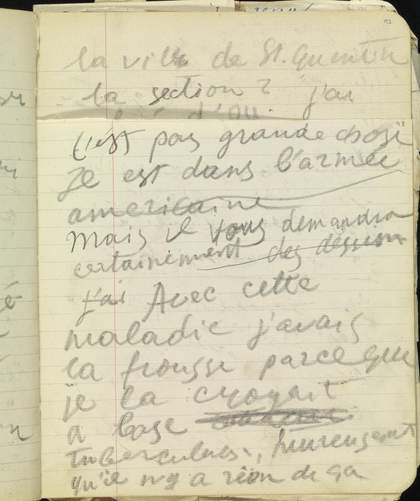 la ville de St. Quentin
la section ? j'ai
d'ou.
C'est pas grande chose
Je est dans l'armée
americaine
Mais il vous demandra
certainement des dession
j'ai Avec cette
maladie j'avais
la frousse parce que
je la croyait
a base
tuberculose, heureusent
qu'il n'y a rion de ça